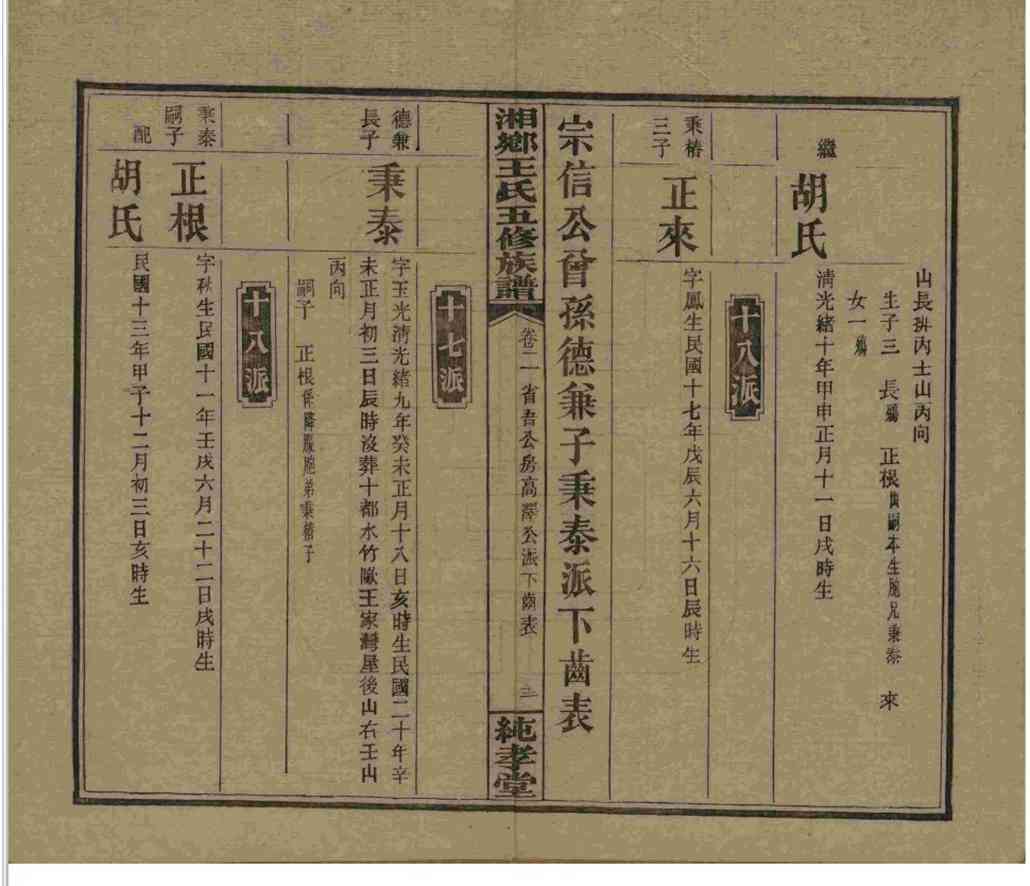 山長塀丙壬山丙向
生子三 長殤 正根出嗣本生胞兄秉泰 來
女一殤
繼
胡氏
清光緒十年甲申正月十一日戌時生
十八派
秉椿三子
正來
字鳳生民國十七年戊辰六月十六日辰時生
宗信公曾孫德兼子秉泰派下齒表
湘鄉王氏五修族譜
卷二 省吾公房高澤公派下齒表
純孝堂
十七派
德兼長子
秉泰
字玉光清光緒九年癸未正月十八日亥時生民國二十年辛
未正月初三日辰時沒葬十都水竹歐王家灣屋後山右壬山
丙向
嗣子 正根係降服胞弟秉椿子
十八派
秉泰嗣子
正根
字秋生民國十一年壬戌六月二十二日戌時生
配
胡氏
民國十三年甲子十二月初三日亥時生